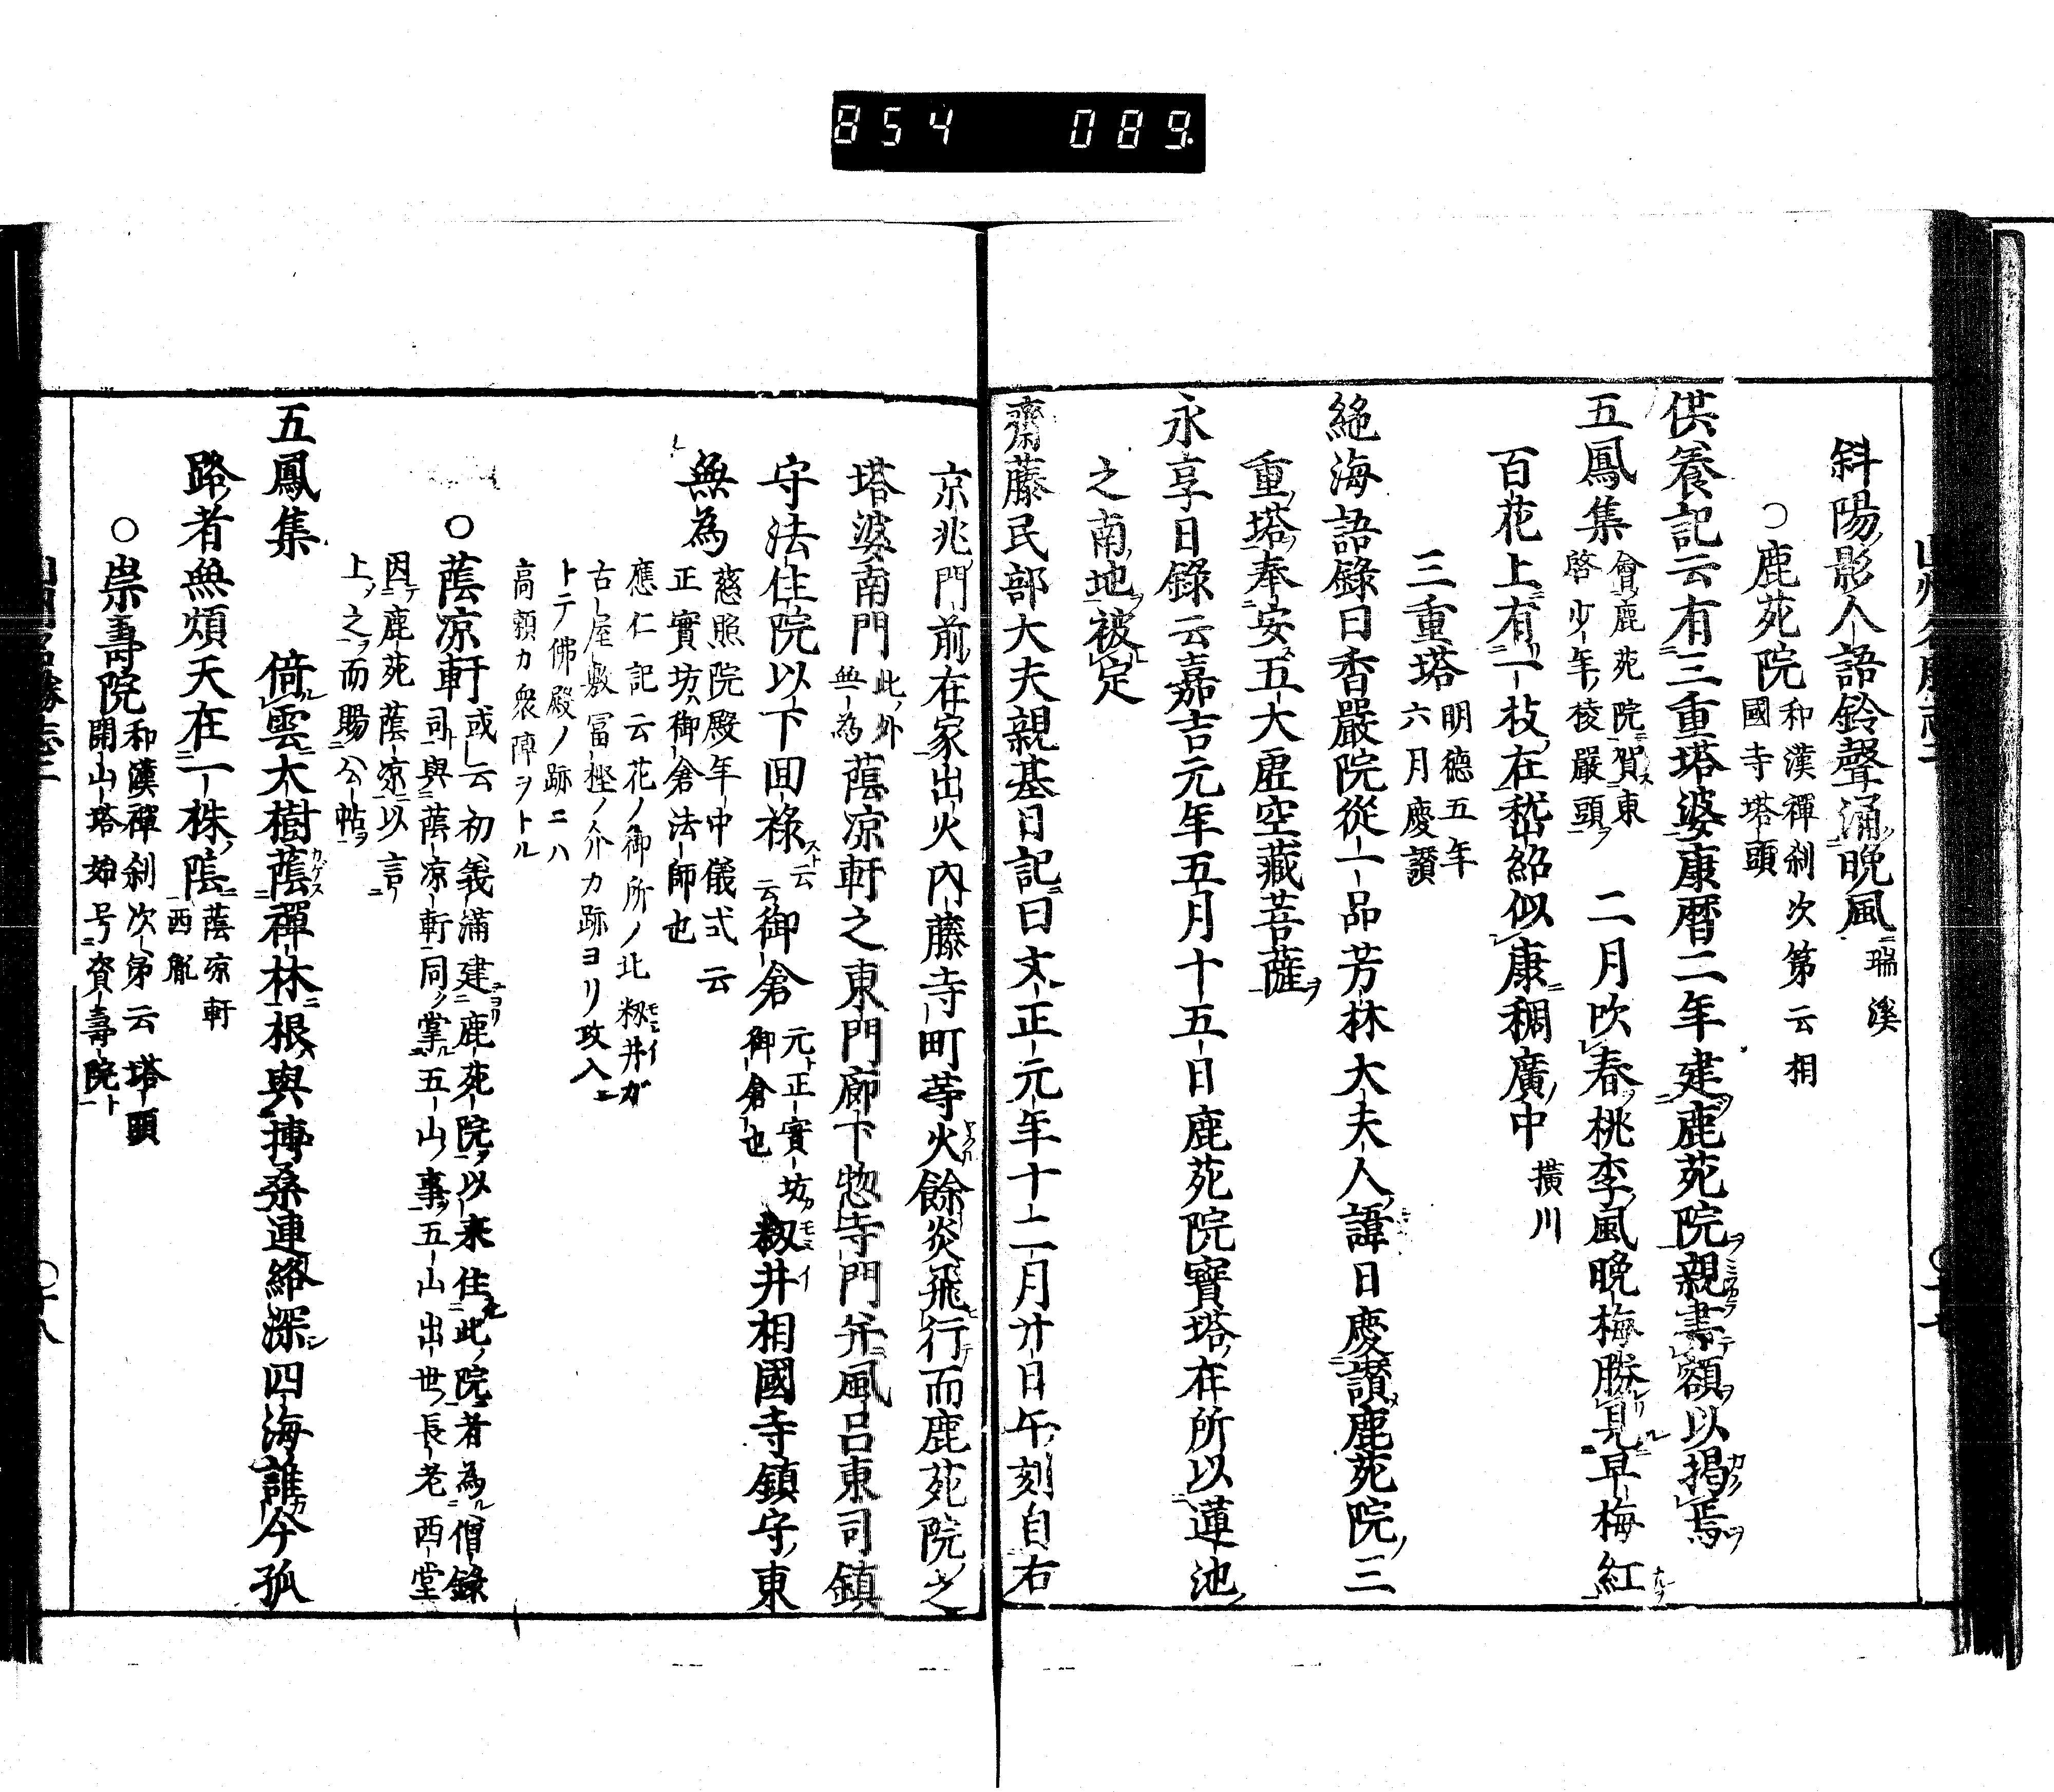 854 089
斜陽影人語鈴聲涌晩風 瑞溪
○鹿苑院 和漢禪刹次第云相
國寺塔頭
供養記云有三重塔婆康暦二年建鹿苑院親書額以掲焉
五鳳集 會鹿苑院賀東
啓少年棱嚴頭 二月吹春桃李風晩梅勝見早梅紅
百花上有一枝在嵆紹似康稠廣中 横川
三重塔 明德五年
六月慶讃
絶海語錄曰香嚴院從一品芳林大夫人諱日慶讃鹿苑院三
重塔奉安五大虚空藏菩薩
永享日錄云嘉吉元年五月十五日鹿苑院寳塔在所以蓮池
之南地被定
齋藤民部大夫親基日記曰文正元年十二月廿日午刻自右
京兆門前在家出火內藤寺町䓁火餘炎飛行而鹿苑院之
塔婆南門 此外
無為 蔭凉軒之東門廊下惣寺門并風呂東司鎮
守法住院以下回祿ストト云云 御倉 元ト正實坊カ
御倉也 籾井相國寺鎮守東
無為 慈照院殿年中儀式云
正實坊御倉法師也
應仁記云花ノ御所ノ北籾井ガ
古屋敷冨樫ノ介カ跡ヨリ攻入
トテ佛殿ノ跡ニハ
高頼カ衆陣ヲトル
○蔭凉軒 或云初義滿建鹿苑院以来住此院者為僧錄
司與蔭凉軒同掌五山事五山出世長老西堂
因鹿苑蔭凉以言
上之而賜公帖
五鳳集 倚雲大樹蔭禪林根與摶桑連絡深四海誰今孤
路者無煩天在一株陰 蔭凉軒
西胤
○崇壽院 和漢禪刹次第云塔頭
開山塔始号資壽院